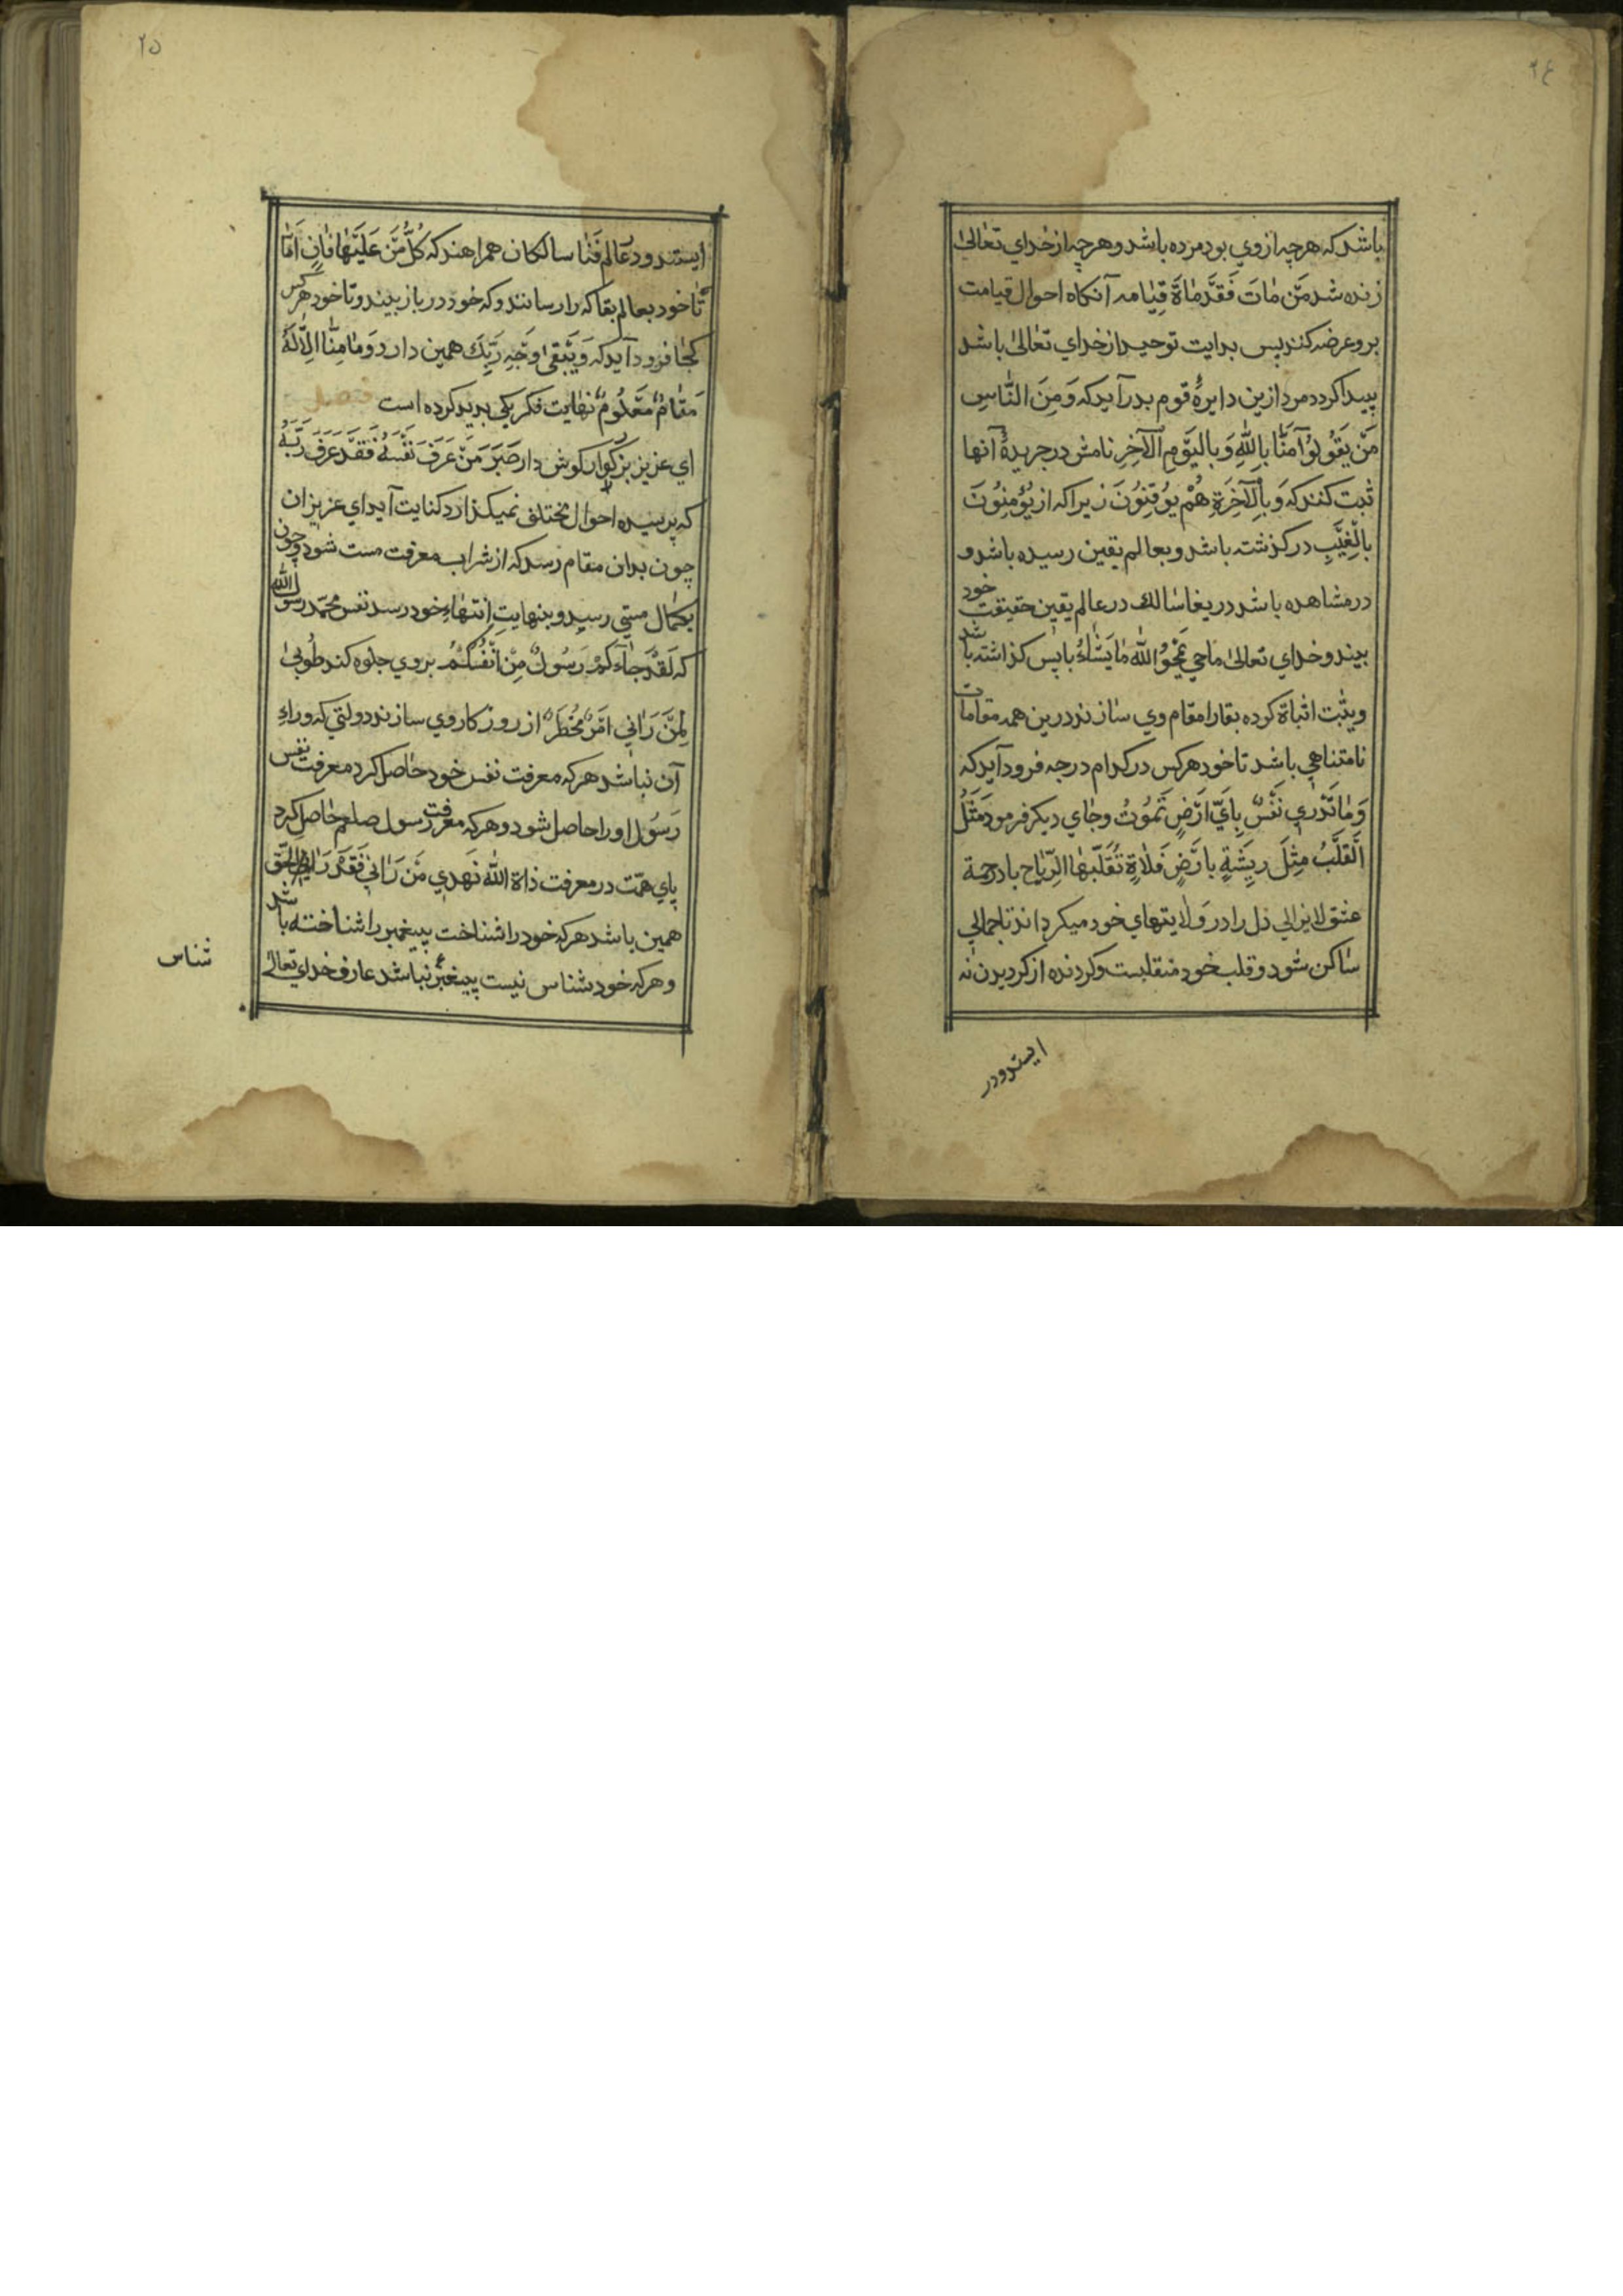 ۲٤
باشد که هرچه ازوي بود مرده باشد و هرچه از خداي تعالیٰ
زنده شد مَنْ مٰاتَ فَقَدْ مٰاةَ قِيٰامه آنكاه احوال قیامت
برو عرضه کنند پس بدایت توحید از خداي تعالیٰ باشد
پیدا کردد مرد ازین دایرهٔ قوم بدر آید که وَمِنَ النّٰاسِ
مَنْ يَقُولُوُ آمَنّٰا بِاللّٰهِ وَبالْيَوْمِ الْآخِرِ نامش در جریدهٔ آنها
ثبت کنند که وَبِالْآخَرَةِ هُمْ يوُقِنوُنَ زیرا که از يُؤمِنوُنَ
بالْغِيَبِ درکذشته باشد و بعالم یقین رسیده باشد و
در مشاهده باشد دریغا سٰالك در عالم یقین حقیقت خود
بیند و خداي تعالیٰ ماحي يَمْحُوْ اللّٰه مٰا يَشٰاءُ با پس کذاشته باشد
ویثبت اثباة کرده بقا را مقام وي سٰازند درین همه مقامات
نامتناهي باشد تا خود هرکس در کدام درجه فرود آید که
وَمٰا تَدْري نَفْسٌ بِاَيّ ارْضٍ تَموُتُ وجٰاي دیکر فرمود مَثَلُ
اَلْقَلْبُ مِثْلَ ريٖشَةٍ بارْضٍ فَلٰاةٍ تُقَلّبهٰا الِرّيٰاح باد رحمة
عشق لایزالي دل را در وَلٰایتهاي خود میکرداند تا جمالي
سٰاکن شود و قلب خود منقلبست و کردنده از کردیدن نه
ایستد ودر
۲۵
ایستد و در عٰالم فَنٰا سالکان همراهند که كُلُّ مَنْ عَلَيْهٰا فٰانٍ اَمّٰا
تٰا خود بعالم بقا که را رسانند و که خود در باز بیند و تا خود هرکس
کجٰا فرود آید که وَيَبْقیٰ وَجْه رَبّكَ همین دارد وَمٰا مِنّٰا اِلّٰا لَهُ
مَقٰامٌ مَعْلُومٌ نهایت فکر یکي پدید کرده است
اي عزیز بزرکوار کوش دار خَبَرَ مَنْ عَرَفَ نَفْسَهُ فَقَدْ عَرَفَ رَبَّهُ
که پرسیده احوال مختلف نمیکذارد کنایت آید اي عزیزان
چون بدان مقام رسد که از شراب معرفت مست شود وچون
بکمٰال مستي رسید و بنهایتِ اِنتهٰاءِ خود رسد نفس محمّد رسول الله
که لَقَدْ جٰاءَکُمْ رَسُولٌ مِنْ اَنْفُسِكُمْ بروي جلوه کند طُوبیٰ
لِمَنْ رَاٰني امْرٌ مُخْطَرٌ از روزکار وي سازند دولتي که وراءِ
آن نباشد هرکه معرفت نفس خود حٰاصل کرد معرفت نفس
رَسُول او را حاصل شود و هرکه معرفت رسول صلعم حٰاصل کرد
پايِ همّت در معرفت ذاة اللّٰه نهدي مَنْ رَاٰنيٖ فَقَدْ رَايَ الحَق
همین باشد هرکه خود را شناخت پیغمبر را شناخته باشد
وهرکه خود شناس نیست پیغمبر نباشد عارف خداي تعالیٰ
شناس